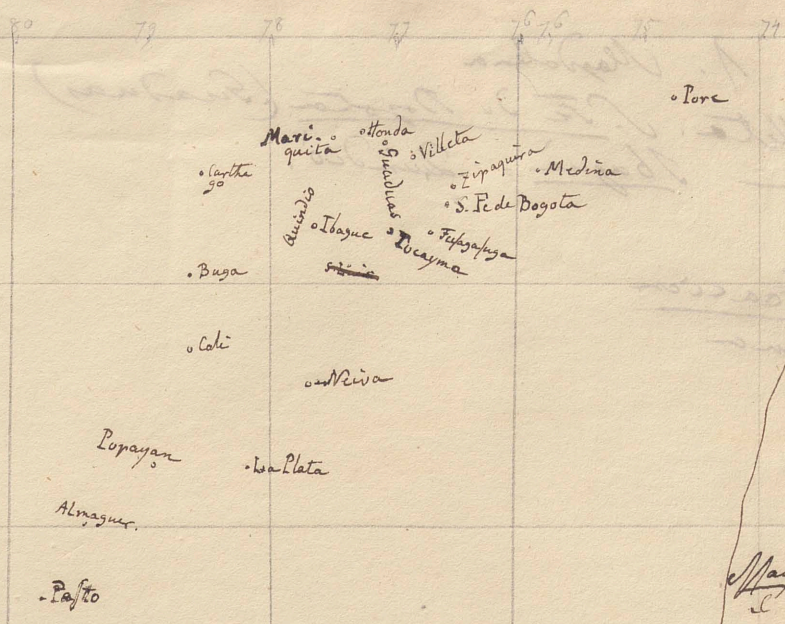 80 79 78 77 76 76 75 74
Pore
Mari-
quita
Honda
Guaduas
Villeta
Zipaquira
Medina
Carthe
go
S. Fe de Bogota
Quindio
Ibague
Tocayma
Fusagasuga
Buga
Cali
Neiva
Popayan
La Plata
Almaguer
Pasto